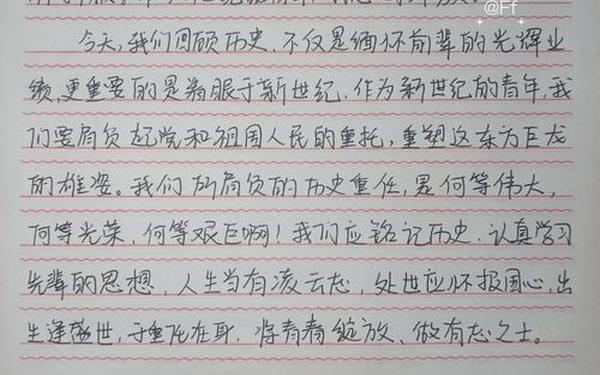 @Ff
今天,我们回顾历史,不仅是缅怀前辈的光辉业
绩,更重要的是着眼于新世纪.作为新世纪的青年,我
们要肩负起党和祖国人民的重托,重塑这东方巨龙
的雄姿。我们所肩负的历史重任,是何等伟大,
何等光荣,何等艰巨啊!我们应铭记历史.认真学习
先辈的思想.人生当有凌云志,处世应怀报国心,出
生逢盛世,于重任在身.将青春绽放、做有志之士。